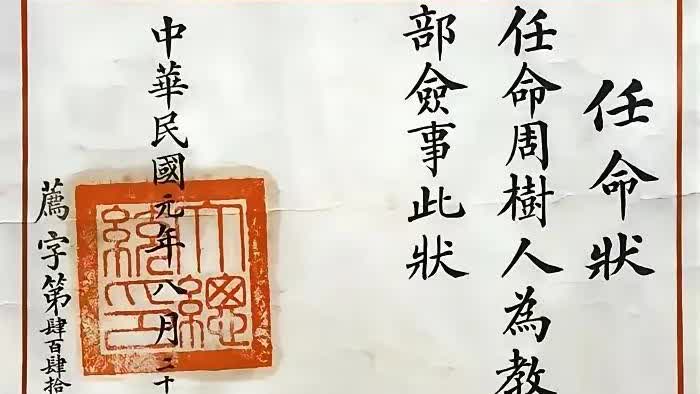 任命狀
任命周樹人為教
部僉事此狀
中華民國元年八月二十
大總統印
薦字第肆百肆拾